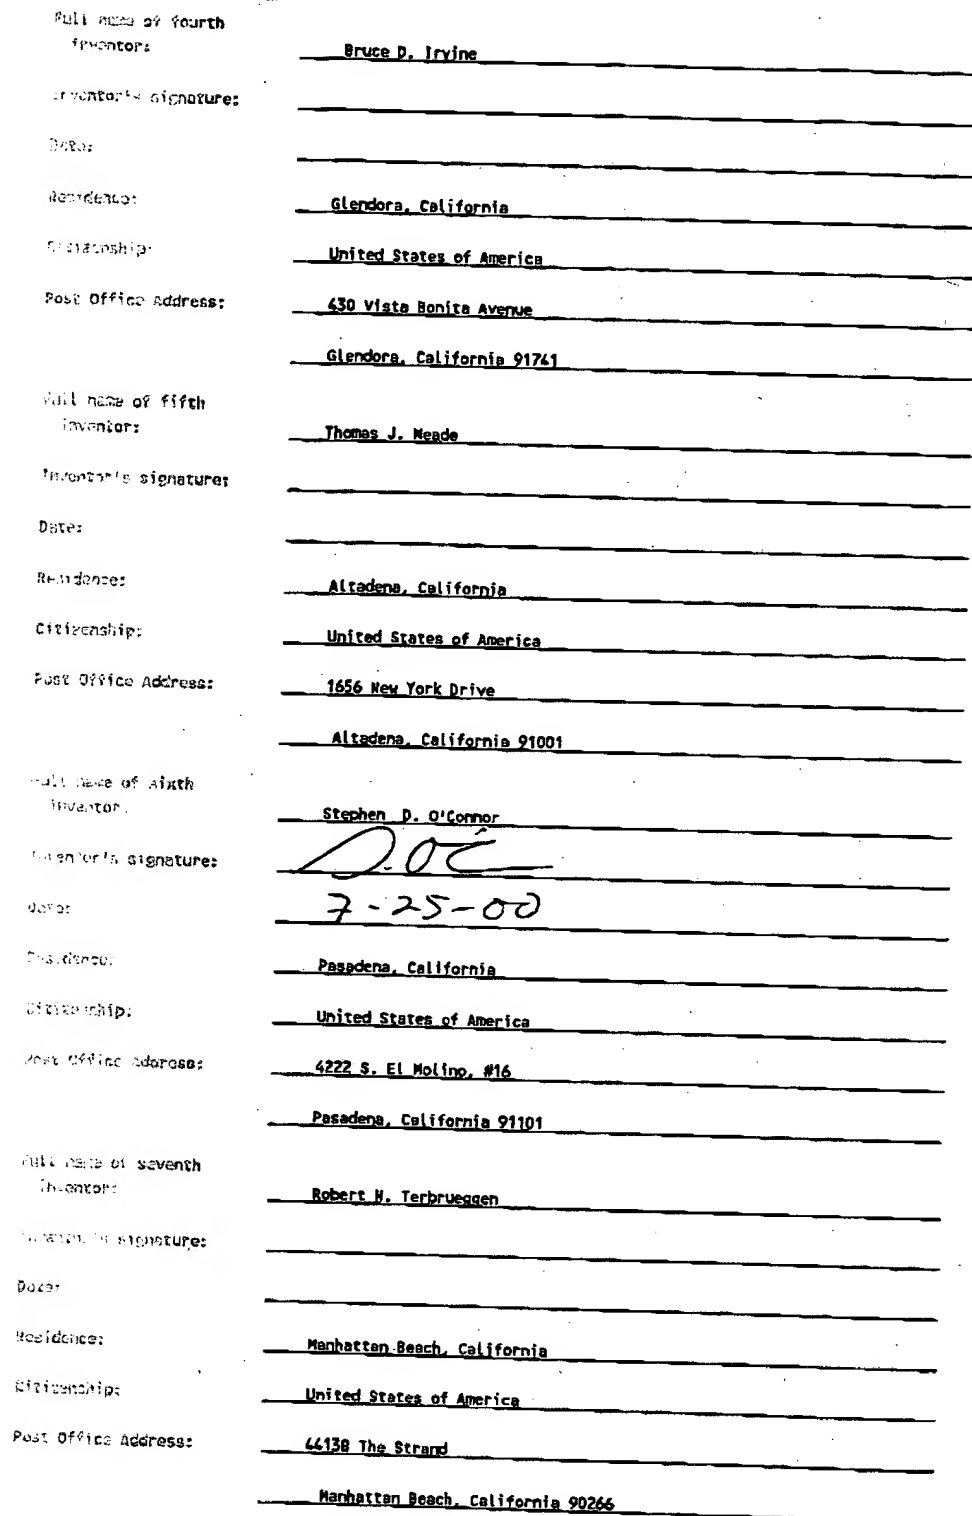 Full name of fourth
inventor: Bruce D. Irvine
Inventor's signature:
Date:
Residence: Glendora, California
Citizenship: United States of America
Post Office Address: 430 Vista Bonita Avenue
Glendora, California 91741
Full name of fifth
inventor: Thomas J. Meade
Inventor's signature:
Date:
Residence: Altadena, California
Citizenship: United States of America
Post Office Address: 1656 New York Drive
Altadena, California 91001
Full name of sixth
inventor: Stephen D. O'Connor
Inventor's signature: S.O'C
Date: 7-25-00
Residence: Pasadena, California
Citizenship: United States of America
Post Office Address: 4222 S. El Molino, #16
Pasadena, California 91101
Full name of seventh
inventor: Robert H. Terbrueggen
Inventor's signature:
Date:
Residence: Manhattan Beach, California
Citizenship: United States of America
Post Office Address: 4413B The Strand
Manhattan Beach, California 90266